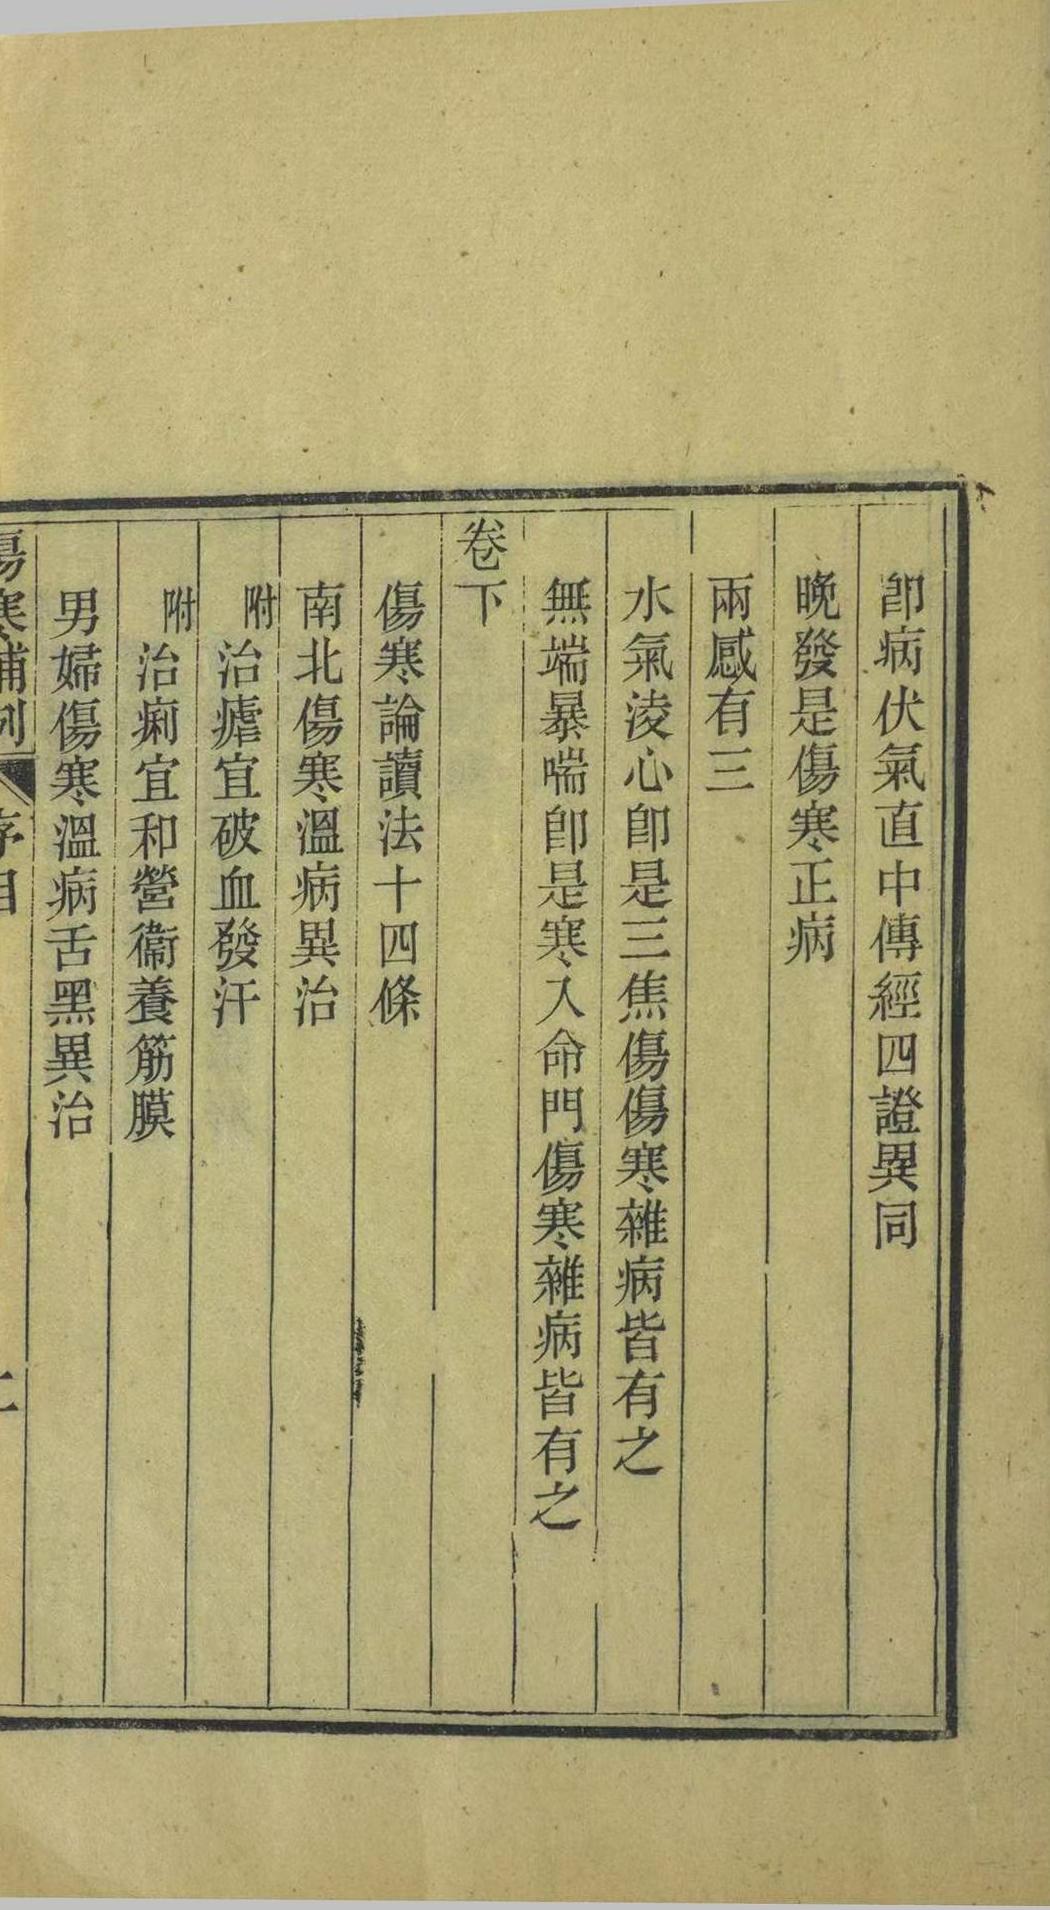 卽病伏氣直中傳經四證異同
晚發是傷寒正病
兩感有三
水氣淩心卽是三焦傷傷寒雜病皆有之
無端暴喘卽是寒入命門傷寒雜病皆有之
卷下
傷寒論讀法十四條
南北傷寒溫病異治
附治瘧宜破血發汗
附治痢宜和營衞養筋膜
男婦傷寒溫病舌黑異治
傷寒補例 序目